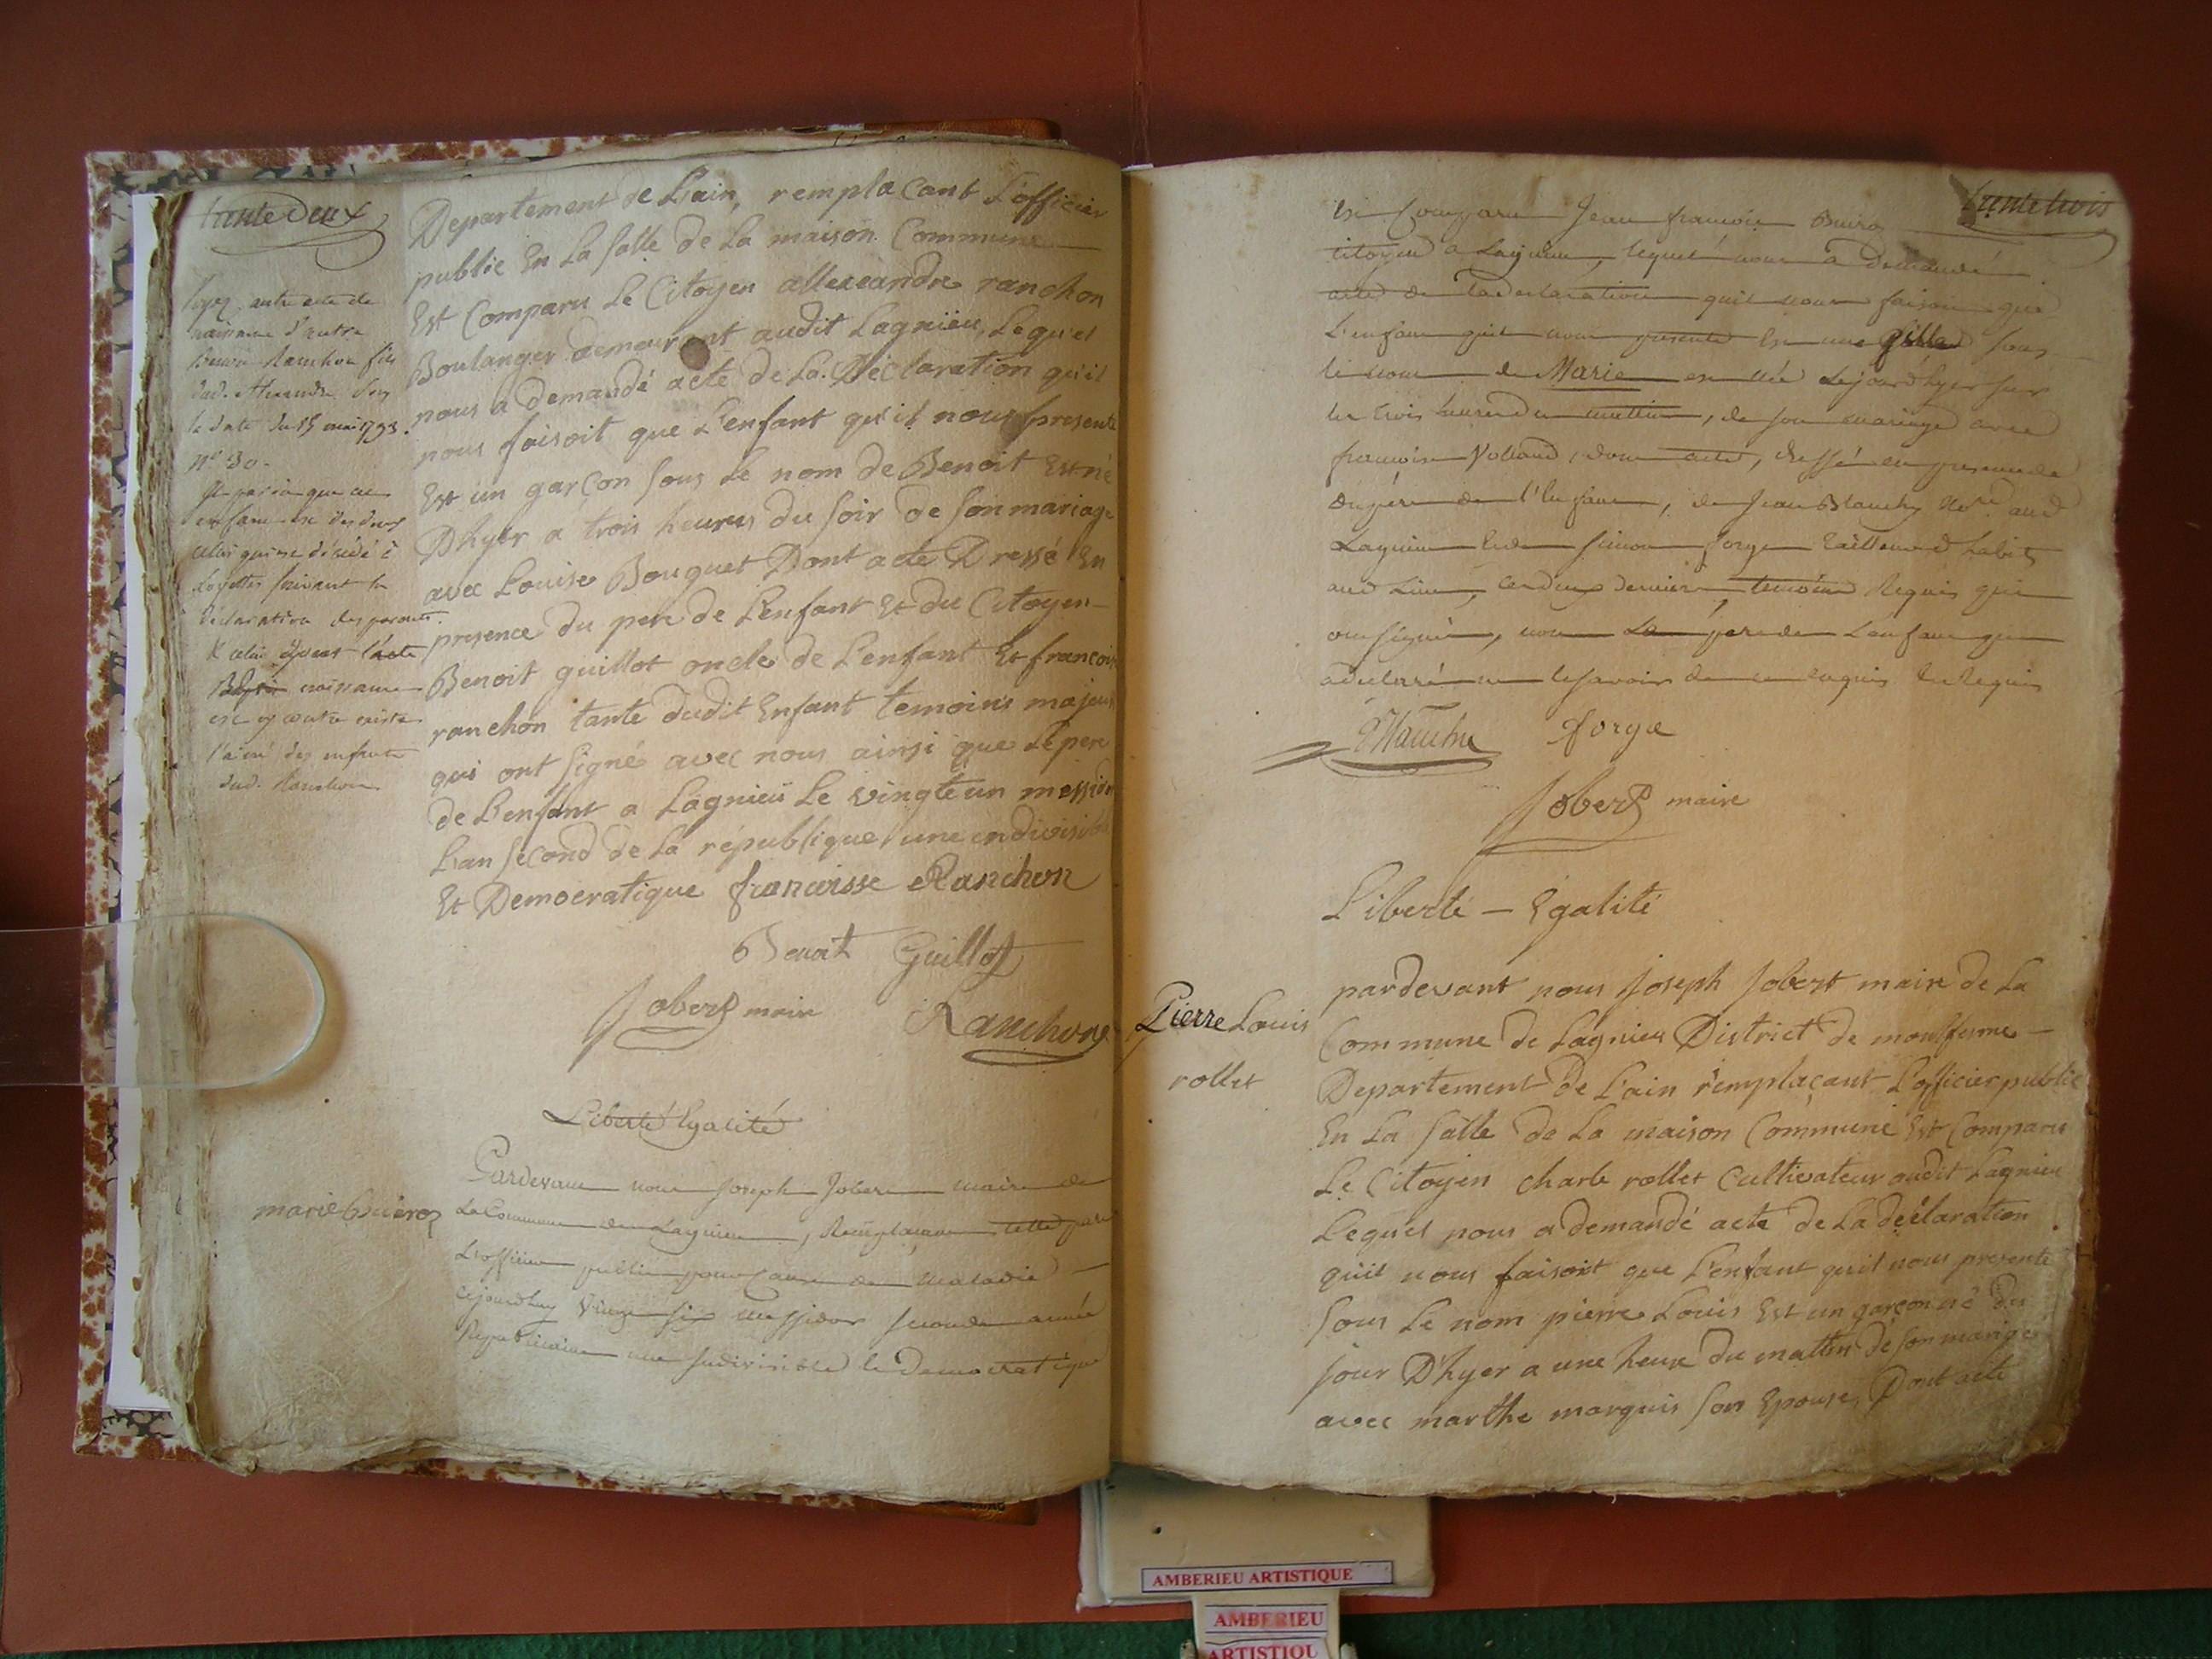 trente Deux
Departement de L'ain, remplaçant L'officier
public En La Salle de La maison Commune
Est Comparu Le Citoyen allexandre ranchon
Boulanger demeurant audit Lagnieu, Lequel
nous a demandé acte de La Déclaration qu'il
nous faisoit que L'enfant qu'il nous presente
Est un garçon sous Le nom de Benoit Est né
D'hyer a trois heures du soir de son mariage
avec Louise Bouquet Dont acte Dressé En
presence du pere de L'enfant Et du Citoyen
Benoit guillot oncle de L'enfant Et francoise
ranchon tante dudit Enfant temoins majeurs
qui ont signé avec nous ainsi que Le pere
de L'enfant a Lagnieu Le vingt un messidor
L'an second de La république une indivisible
Et Democratique francoisse Ranchon
Benoit Guillot
Jobert maire Ranchon
Voyez autre acte de
naissance d'autre
Benoit Ranchon fils
dud. Alexandre sous
la date du 15 mai 1793.
N° 30.
Il paroit que cet
enfant est des deux
celui qui est décédé à
Loyettes suivant la
déclaration des parents.
naissance
l'ainé des enfants
dud. Ranchon
Liberté Egalité
marie Buiroz
Pardevant nous Joseph Jobert maire de
La Commune de Lagnieu, Remplaçant
L'officier public pour Cause de maladie
Cejourdhuy vingt six messidor seconde année
Republicaine une indivisible et Democratique
trente trois
Est Comparu Jean francois Buiroz
citoyen a Lagnieu, lequel nous a demandé
acte de la declaration quil nous faisoit que
L'enfant quil nous presente Est une fille sous
le nom de Marie est née Lejour d'hyer sur
les trois heures du mattin, de son mariage avec
francoise Volland, dont acte, dressé en presence de
du pere de l'Enfant, de Jean Blanchy aud
Lagnieu Et de simon forge tailleur d'habits
aud Lieu, ces deux derniers temoins Requis qui
ont signés, non Le pere de L'enfant qui
a declaré ne le savoir de ce enquis Et Requis
Blanchy forge
Jobert maire
Liberté — Egalité
Pierre Louis
rollet
pardevant nous Joseph Jobert maire de La
Commune de Lagnieu District de montferme
Departement de L'ain remplaçant L'officier public
En La Salle de La maison Commune Est Comparu
Le Citoyen charle rollet Cultivateur audit Lagnieu
Lequel nous a demandé acte de La déclaration
qu'il nous faisoit que L'enfant qu'il nous presente
sous Le nom pierre Louis Est un garçon né du
jour D'hyer a une heure du mattin de son mariage
avec marthe marquis son Epouse, Dont acte
AMBERIEU ARTISTIQUE
AMBERIEU
ARTISTIQU